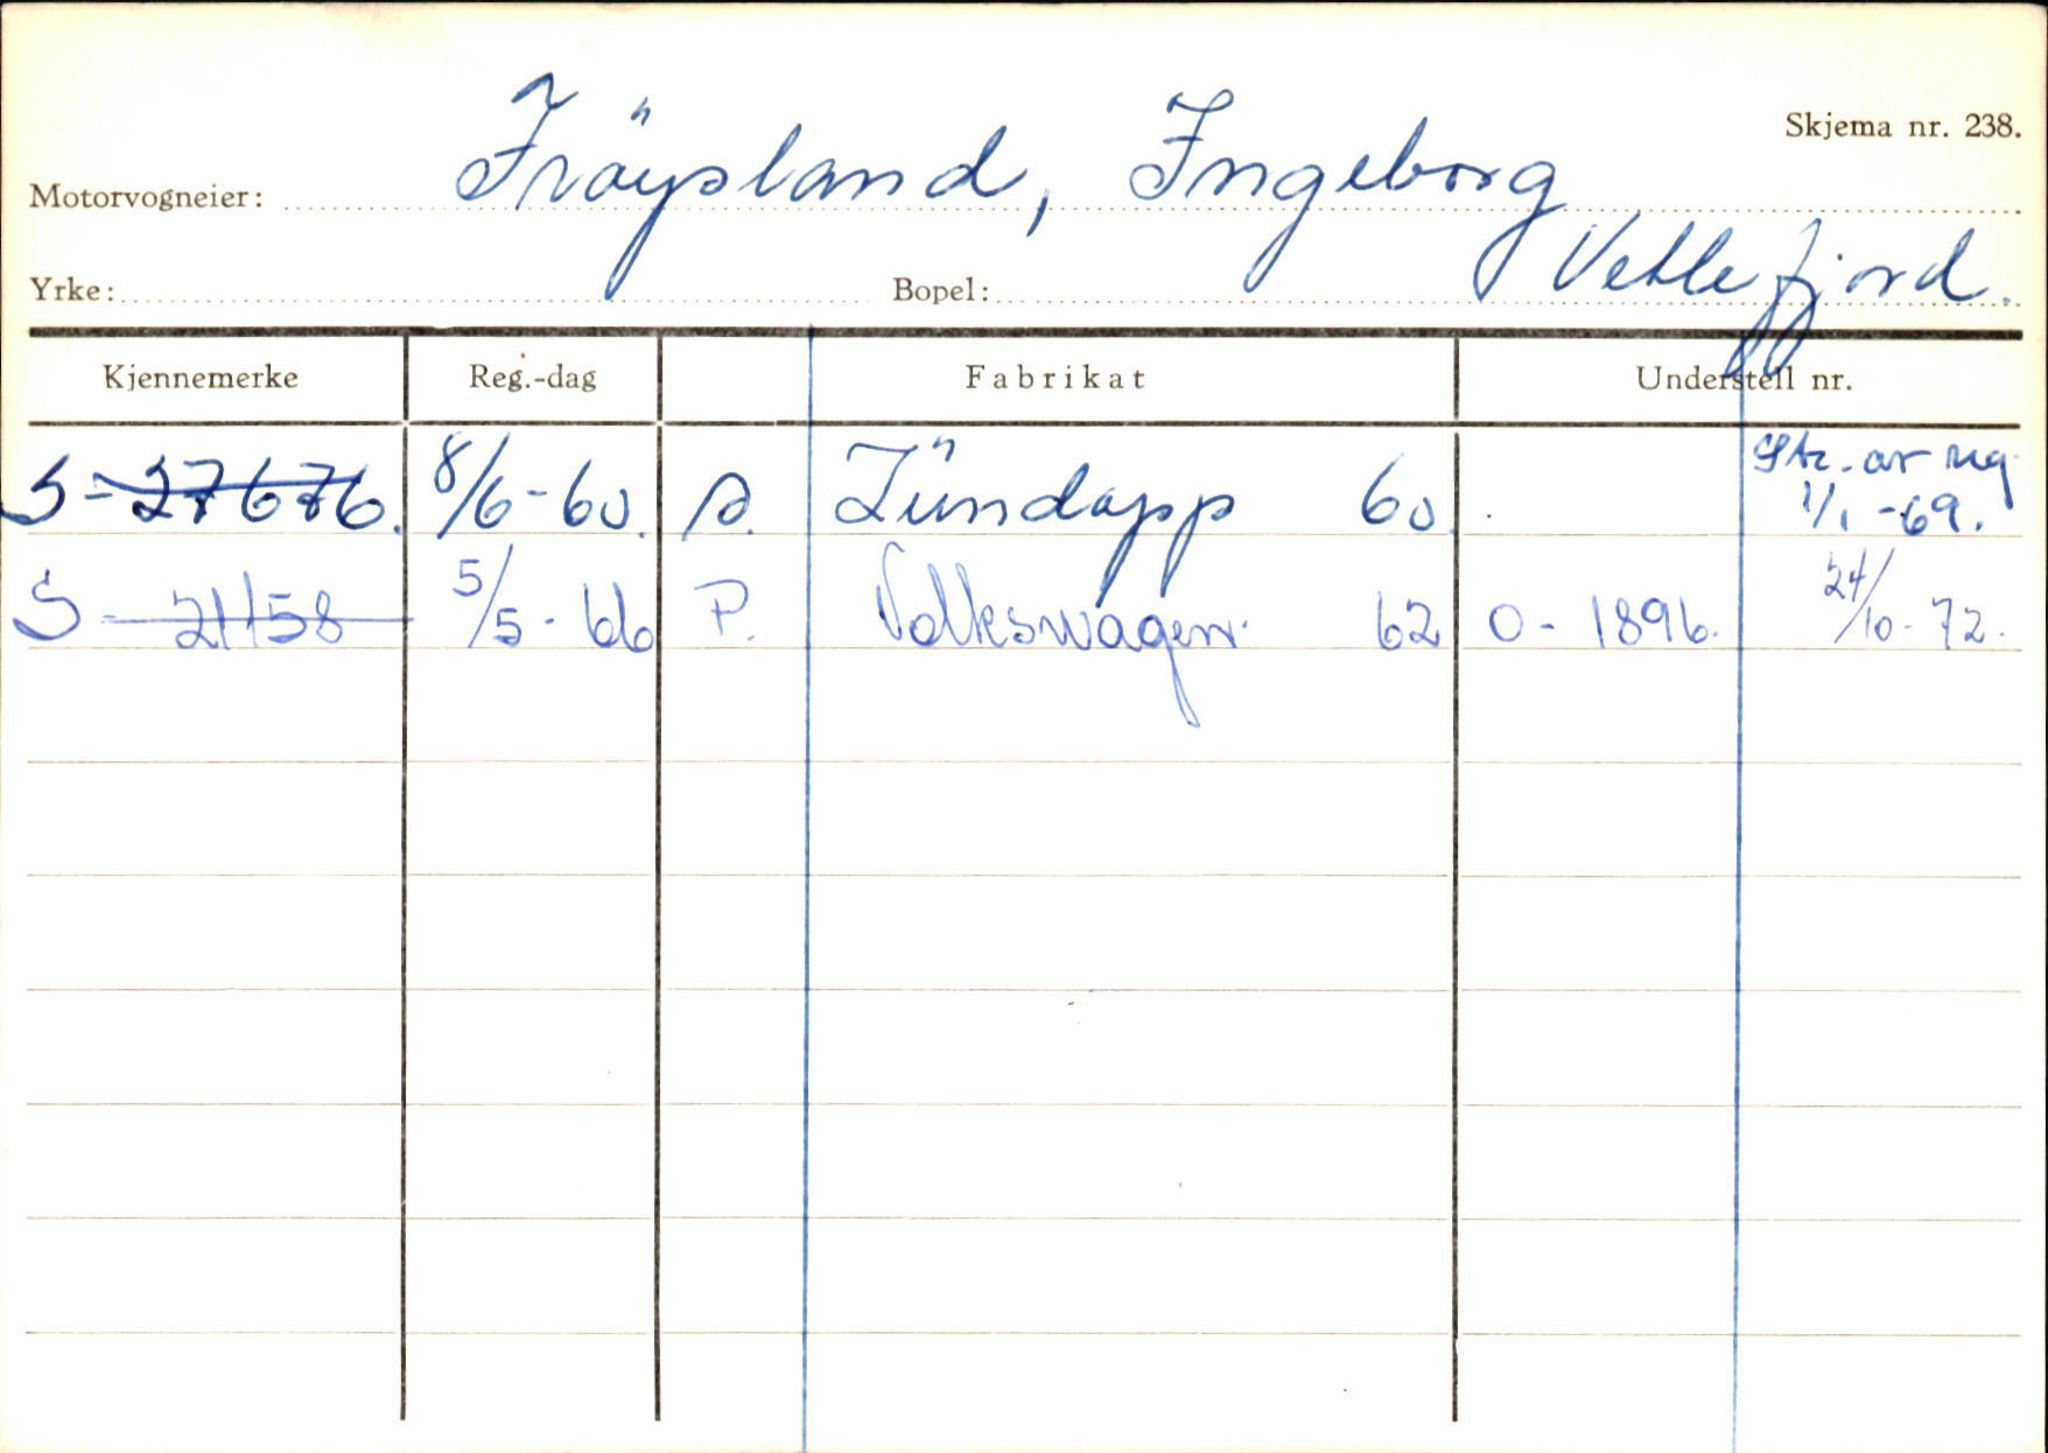 Skjema nr. 238.
Motorvogneier: Fröysland, Ingeborg
Yrke: Bopel: Vetlefjord.
Kjennemerke Reg.-dag Fabrikat Understell nr.
S-27676. 8/6-60. s. Zündapp 60. Str. av reg. 1/1-69.
S-21158 5/5-66 P. Volkswagen. 62 0-1896. 24/10-72.